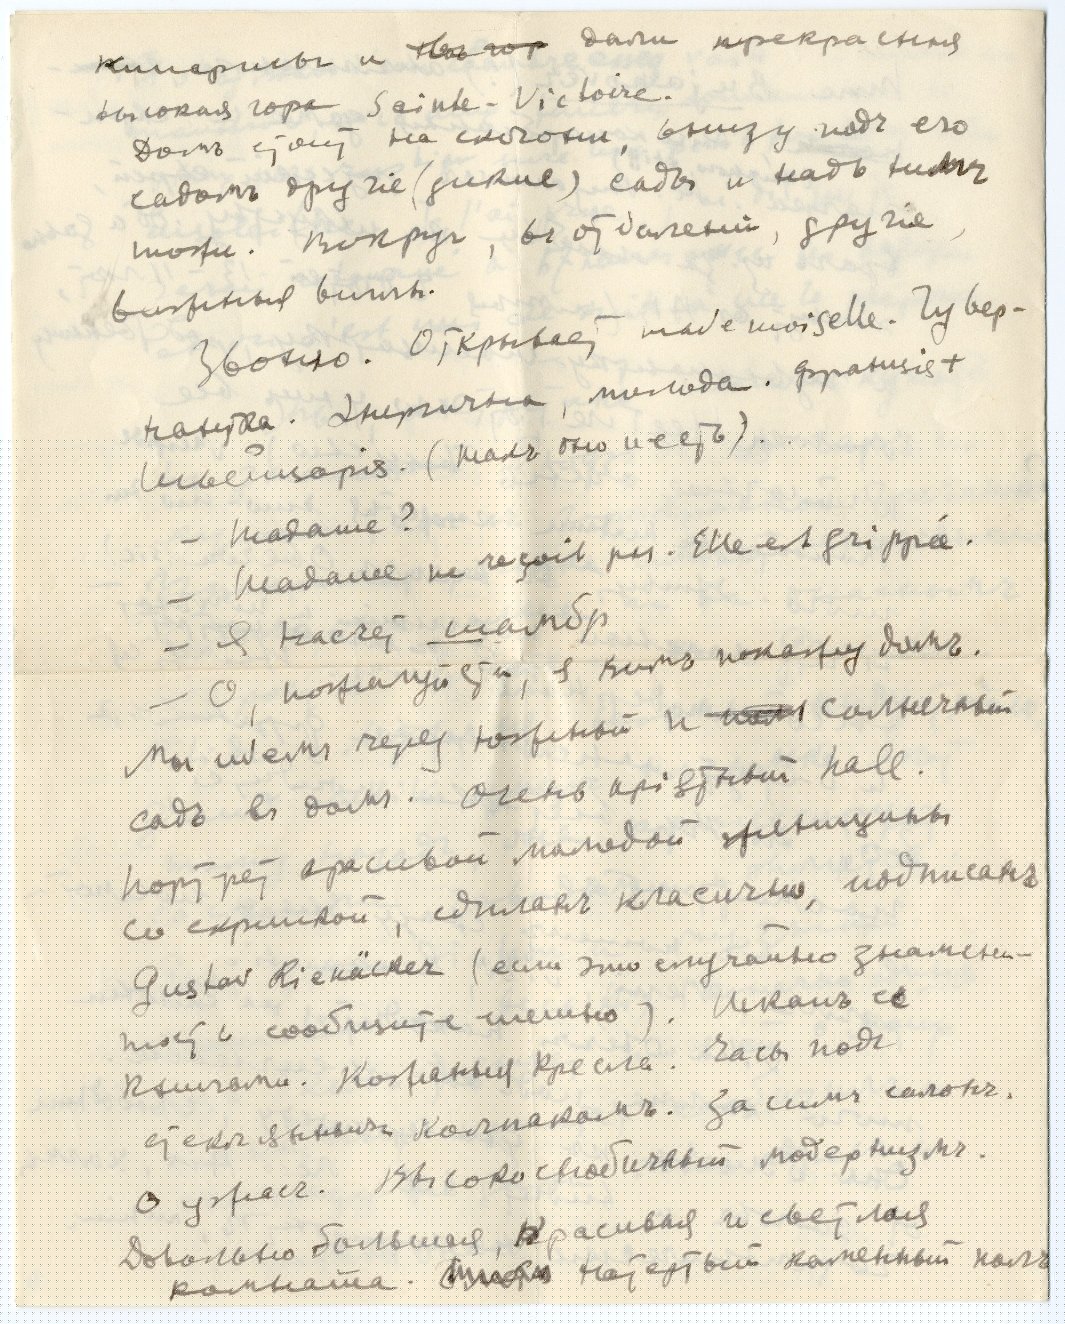 кипарисы и дали прекрасныя
высокая гора Sainte-Victoire.
Домъ стоит на склоне, внизу подъ его
садомъ другіе (дикие) сады и надъ нимъ
тоже. Вокругъ, въ отдалении, другіе,
виллы.
Звоню. Открывает mademoiselle. Гувер-
нантка. Энергична, молода.
Швейцарія. (такъ оно и есть).
– Madame?
– Madame ne reçoit pas. Elle est grippée.
– Я насчет шамбр
– О, пожалуйста, я вамъ покажу домъ.
Мы идемъ через южный и солнечный
садъ въ домъ. Очень пріятный hall.
Портрет красивой молодой женщины
со скрипкой, сделанъ класично, подписанъ
Gustav Rienäcker (если это случайно знамени-
тость сообщите мне). Шкапъ съ
книгами. Кожаныя кресла. Часы подъ
стекляннымъ колпакомъ. За симъ салонъ.
О ужасъ. модернизмъ.
Довольно большая, красивая и светлая
комната. натертый каменный полъ